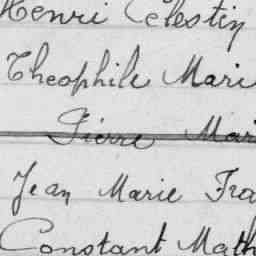 Henri Celestin
Theophile Mari
Pierre Mar
Jean Marie Fra
Constant Math